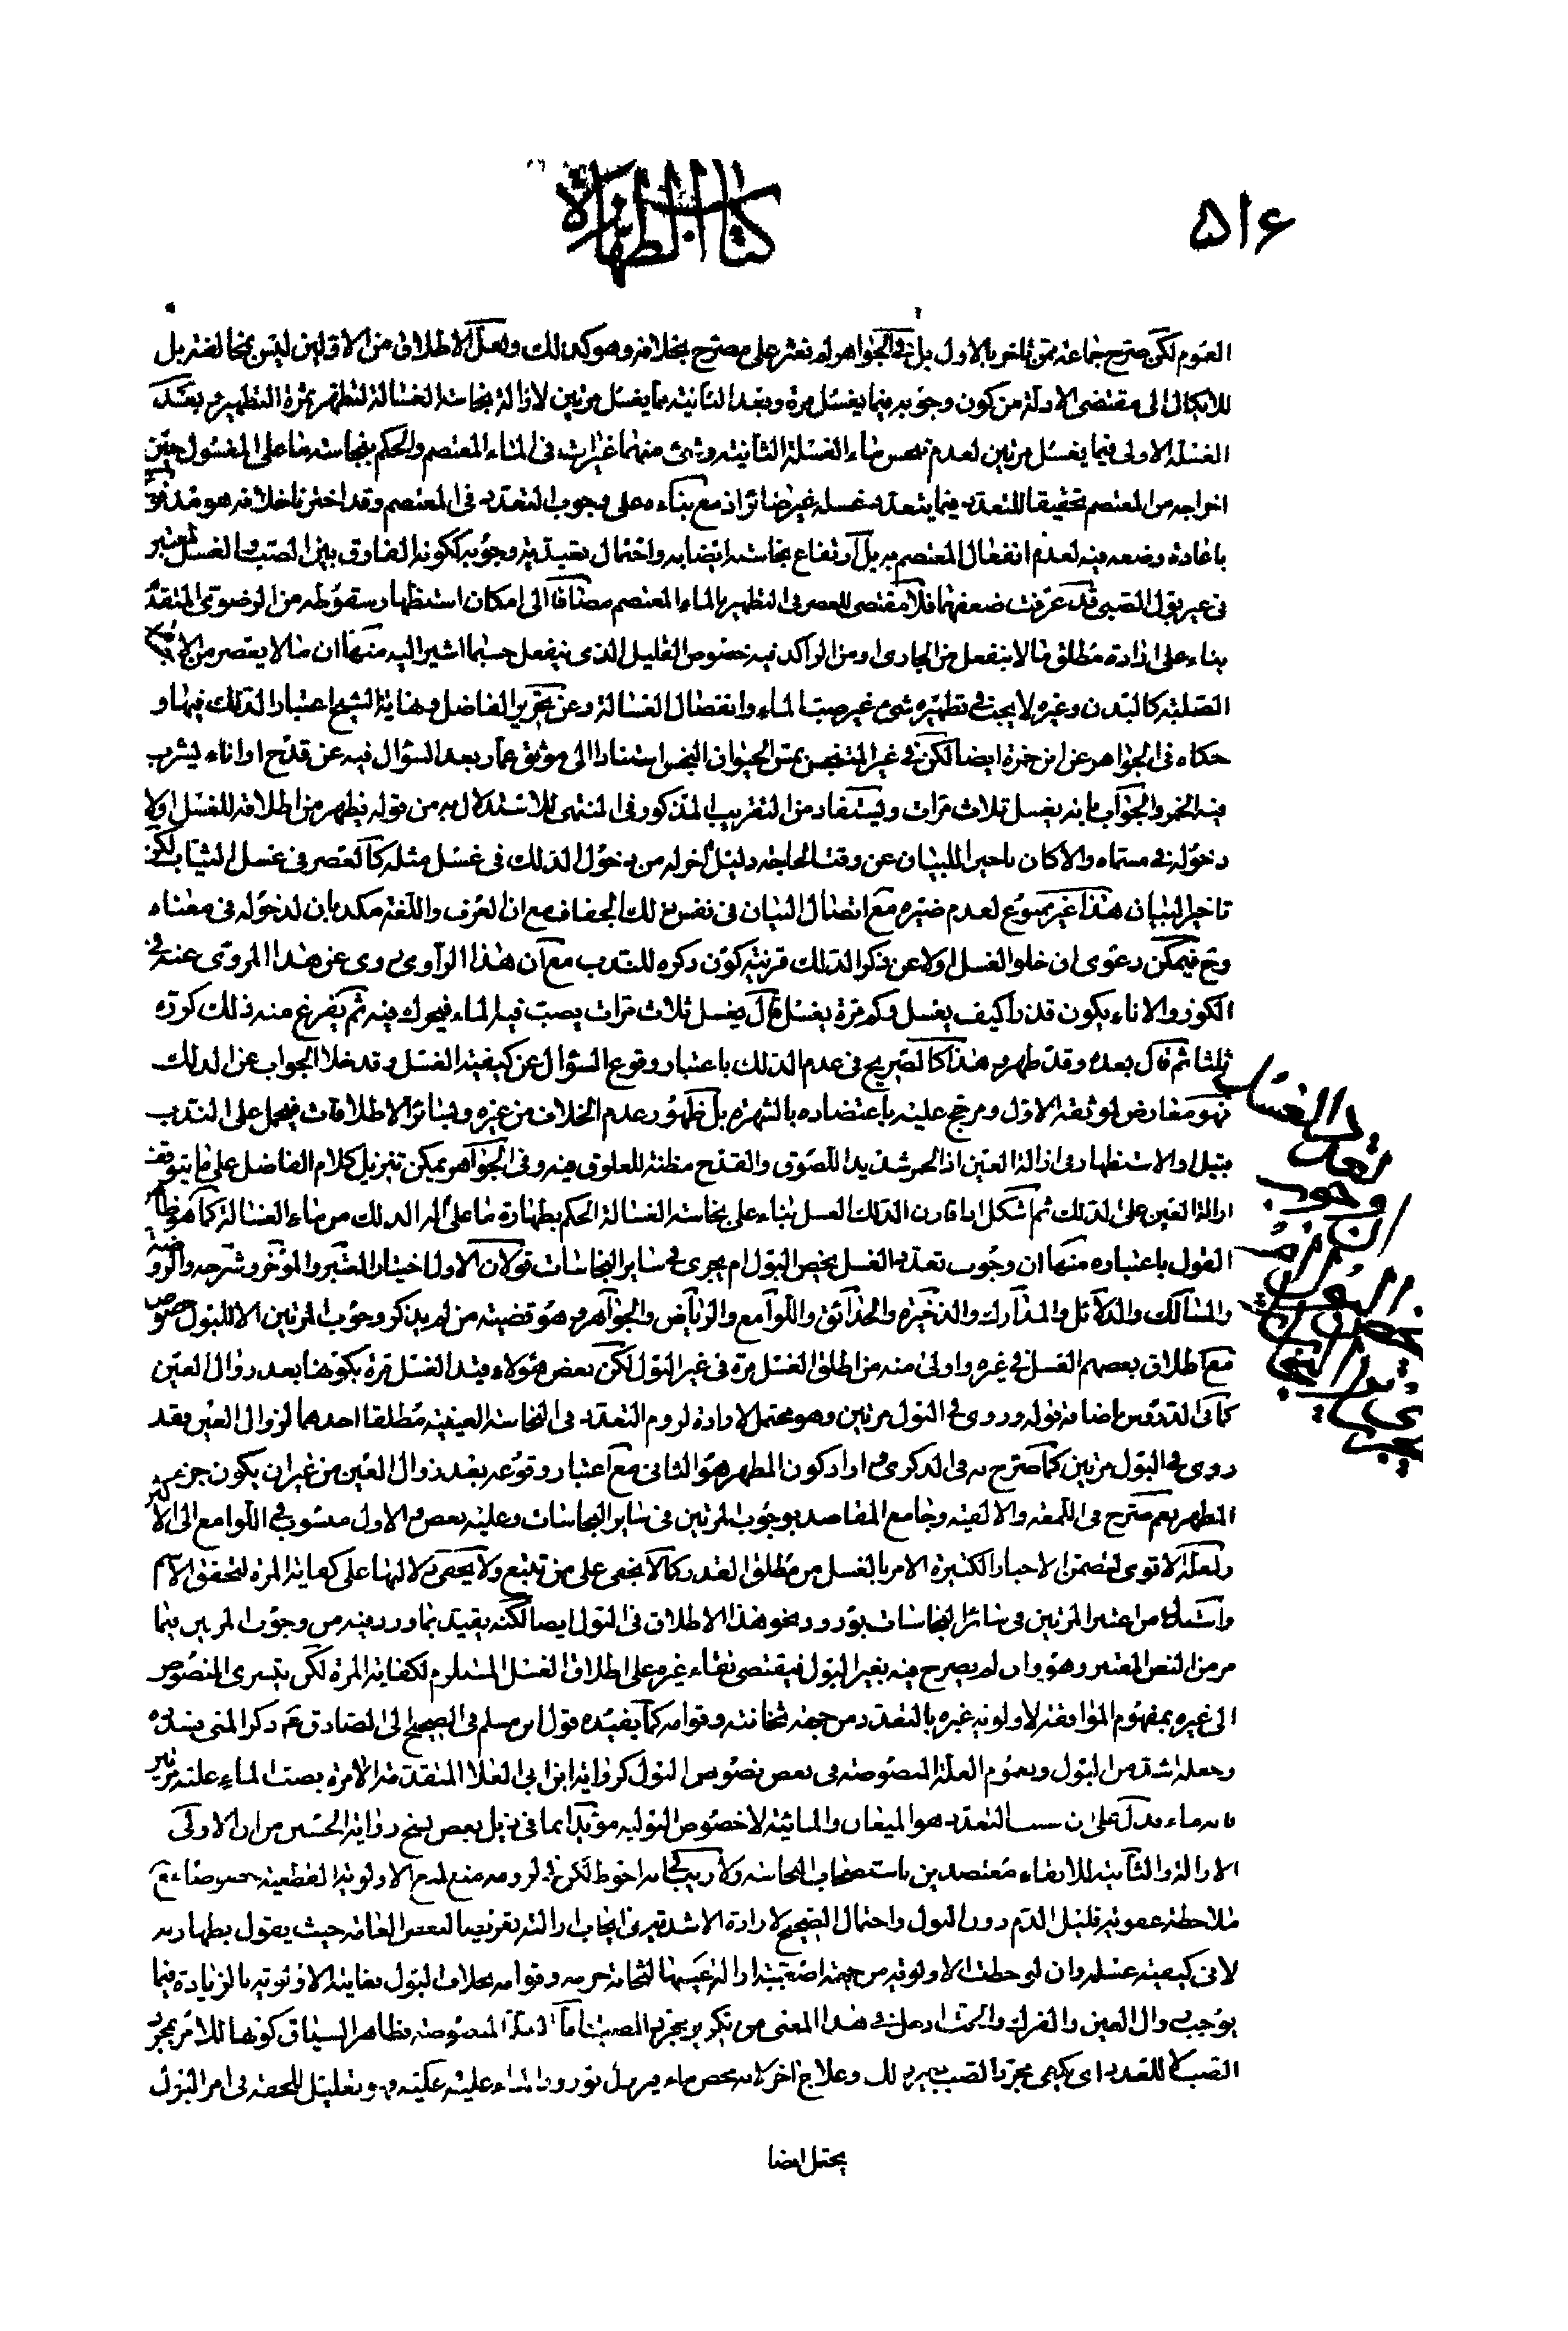 ۵۱۶
كتاب الطهارة
العموم لكن صرح جماعة ممن تاخر بالاول بل في الجواهر لم نعثر على مصرح بخلافه وهو كذلك ولعل الاطلاق من الاولين ليس مخالفة بل
للاتكال الى مقتضى الادلة من كون وجوبه فيما يغسل مرة وبعد الثانية مما يغسل مرتين لازالة نجاسة الغسالة لتظهر ثمرة التطهير وبعد
الغسلة الاولى فيما يغسل مرتين لعدم تنجس ماء الغسلة الثانية وشئ منهما غير ات في الماء المعتصم والحكم بنجاسة ما على المغسول حين
اخراجه من المعتصم تحقيقا للتعدد فيما يتعدد غسله غير ضائر اذ مع بناءه على وجوب التعدد في المعتصم وقد اخترنا خلافه هو
باعادة وضعه فيه لعدم انفعال المعتصم به بل ارتفاع نجاسته ايضا به واحتمال تعبدية وجوبه ككونه الفارق بين الصب والغسل المعتبر
في غير بول الصبي قد عرفت ضعفهما فلا مقتضى للعصر في التطهير بالماء المعتصم مضافا الى امكان استظهار سقوطه من الرضوي المتقدم
بناء على ارادة مطلق ما لا ينفعل من الجاري او من الراكد فيه خصوص القليل الذي ينفعل حسبما اشير اليه منها ان ما لا يعصر من
الصلبة كالبدن وغيره لا يجب في تطهيره شئ غير صب الماء وانفصال الغسالة وعن تحرير الفاضل ونهاية الشيخ اعتبار الدلك فيها و
حكاه في الجواهر عن ابن حمزة ايضا لكن في غير المتنجس بمس الحيوان النجس استنادا الى موثق عمار بعد السؤال فيه عن قدح او اناء يشرب
فيه الخمر والجواب بانه يغسل ثلاث مرات ويستفاد من التقريب المذكور في المنتهى للاستدلال به من قوله فيظهر من اطلاقه للغسل اولا
دخوله في مسماه والا كان تاخير البيان عن وقت الحاجة دليل اخر له من دخول الدلك في غسل مثله كالعصر في غسل الثياب لكن
تاخير البيان هذا غير ممنوع لعدم ضيره مع اتصال البيان في نفس ذلك مع ان العرف واللغة بان لدخوله في معناه
وح فيمكن دعوى ان خلو الغسل اولا عن ذكر الدلك قرينة كون ذكره للندب مع ان هذا الراوي روى عن هذا المروي عنه في
الكوز والاناء يكون قذرا كيف يغسل وكم مرة يغسل قال يغسل ثلاث مرات يصب فيه الماء فيحرك فيه ثم يفرغ منه ذلك كرره
ثلثا ثم قال بعده وقد طهر وهذا كالصريح في عدم الدلك باعتبار وقوع السؤال عن كيفية الغسل وقد خلا الجواب عن الدلك
فهو معارض لموثقه الاول ومرجح عليه باعتضاده بالشهرة بل ظهور عدم الخلاف من غيره ولسائر الاطلاقات فيحمل على الندب
والاستظهار في ازالة العين اذ الخمر شديد اللصوق والقدح مظنة للعلوق فيه وفي الجواهر يمكن تنزيل كلام الفاضل على ما يتوقف
ازالة العين على الدلك ثم اشكل اذا قارن الدلك الغسل بناء على نجاسة الغسالة الحكم بطهارة ما على الة الدلك من ماء الغسالة كما هو
القول باعتباره منها ان وجوب تعدد الغسل يخص البول ام يجري في ساير النجاسات قولان الاول اختيار المعتبر والموجز وشرحه والروضة
والمسالك والدلائل والمدارك والذخيرة والحدائق واللوامع والرياض والجواهر وهو قضية من لم يذكر وجوب المرتين الا للبول
مع اطلاق بعضهم الغسل في غيره واولى منه من اطلق الغسل مرة في غير البول لكن بعض هؤلاء قيد الغسل مرة بكونها بعد زوال العين
كما في الدروس باضافة قوله وروى في البول مرتين وهو محتمل لارادة لزوم التعدد في النجاسة العينية مطلقا احدهما لزوال العين بعد
روى في البول مرتين كما صرح به في الذكرى او اراد كون المطهر هو الثاني مع اعتبار وقوعه بعد زوال العين من غير ان يكون جزء
المطهر نعم صرح في اللمعة والالفية وجامع المقاصد بوجوب المرتين في سائر النجاسات وعليه بعض والاول منسوب في اللوامع الى الاكثر
ولعله الاقوى لتضمن الاخبار الكثيرة الامر بالغسل من مطلق القذر كما لا يخفى على من تتبع ولا يخفى دلالتها على كفاية المرة لتحقق
واستدل من اعتبر المرتين في سائر النجاسات بورود نحو هذا الاطلاق في البول ايضا لكنه يقيد بما ورد فيه من وجوب المرتين فيما
مر من النص المعتبر وهو وان لم يصرح فيه بغير البول فيقتضى بقاء غيره على اطلاق الغسل المستلزم لكفاية المرة لكن يتسرى المنصوص
الى غيره بمفهوم الموافقة لاولوية غيره بالتعدد من جهة ثخانته وقوامه كما يفيده قول ابن مسلم في الصحيح الى الصادق ع ذكر المني فشدده
وجعله اشد من البول وبعموم العلة المنصوصة في بعض نصوص البول كرواية ابن ابي العلا المتقدمة الامرة بصب الماء عليه مرتين
بانه ماء يدل على ان سبب التعدد هو والمائية لا خصوص البولية مؤيدا بما في ذيل بعض نسخ رواية الحسين من ان الاولى
الازالة والثانية للانقاء معتضدين باستصحاب النجاسة ولا ريب في انه احوط لكن في لزومه منع لعدم الاولوية القطعية خصوصا مع
ملاحظة عفوية قليل الدم دون البول واحتمال الصحيح لارادة الاشدية في ايجاب ازالته تعريضا لبعض العامة حيث يقول بطهارته
لا في كيفية غسله وان لوحظت الاولوية من جهة اصعبية ازالة عينها لثخانة جرمه وقوامه بخلاف البول فغاية الاولوية بالزيادة فيما
يوجب زوال العين والفرك والحت ادخل في هذا المعنى من تكرير مجرد الصب واما العلة المنصوصة فظاهر السياق كونها للامر بمجرد
الصب لا للتعدد اي يكفي مجرد الصب وعلاج اخر لانه محض ماء يزول بورود الماء عليه
يحتمل ايضا
تعدد الغسل
ان وجوب